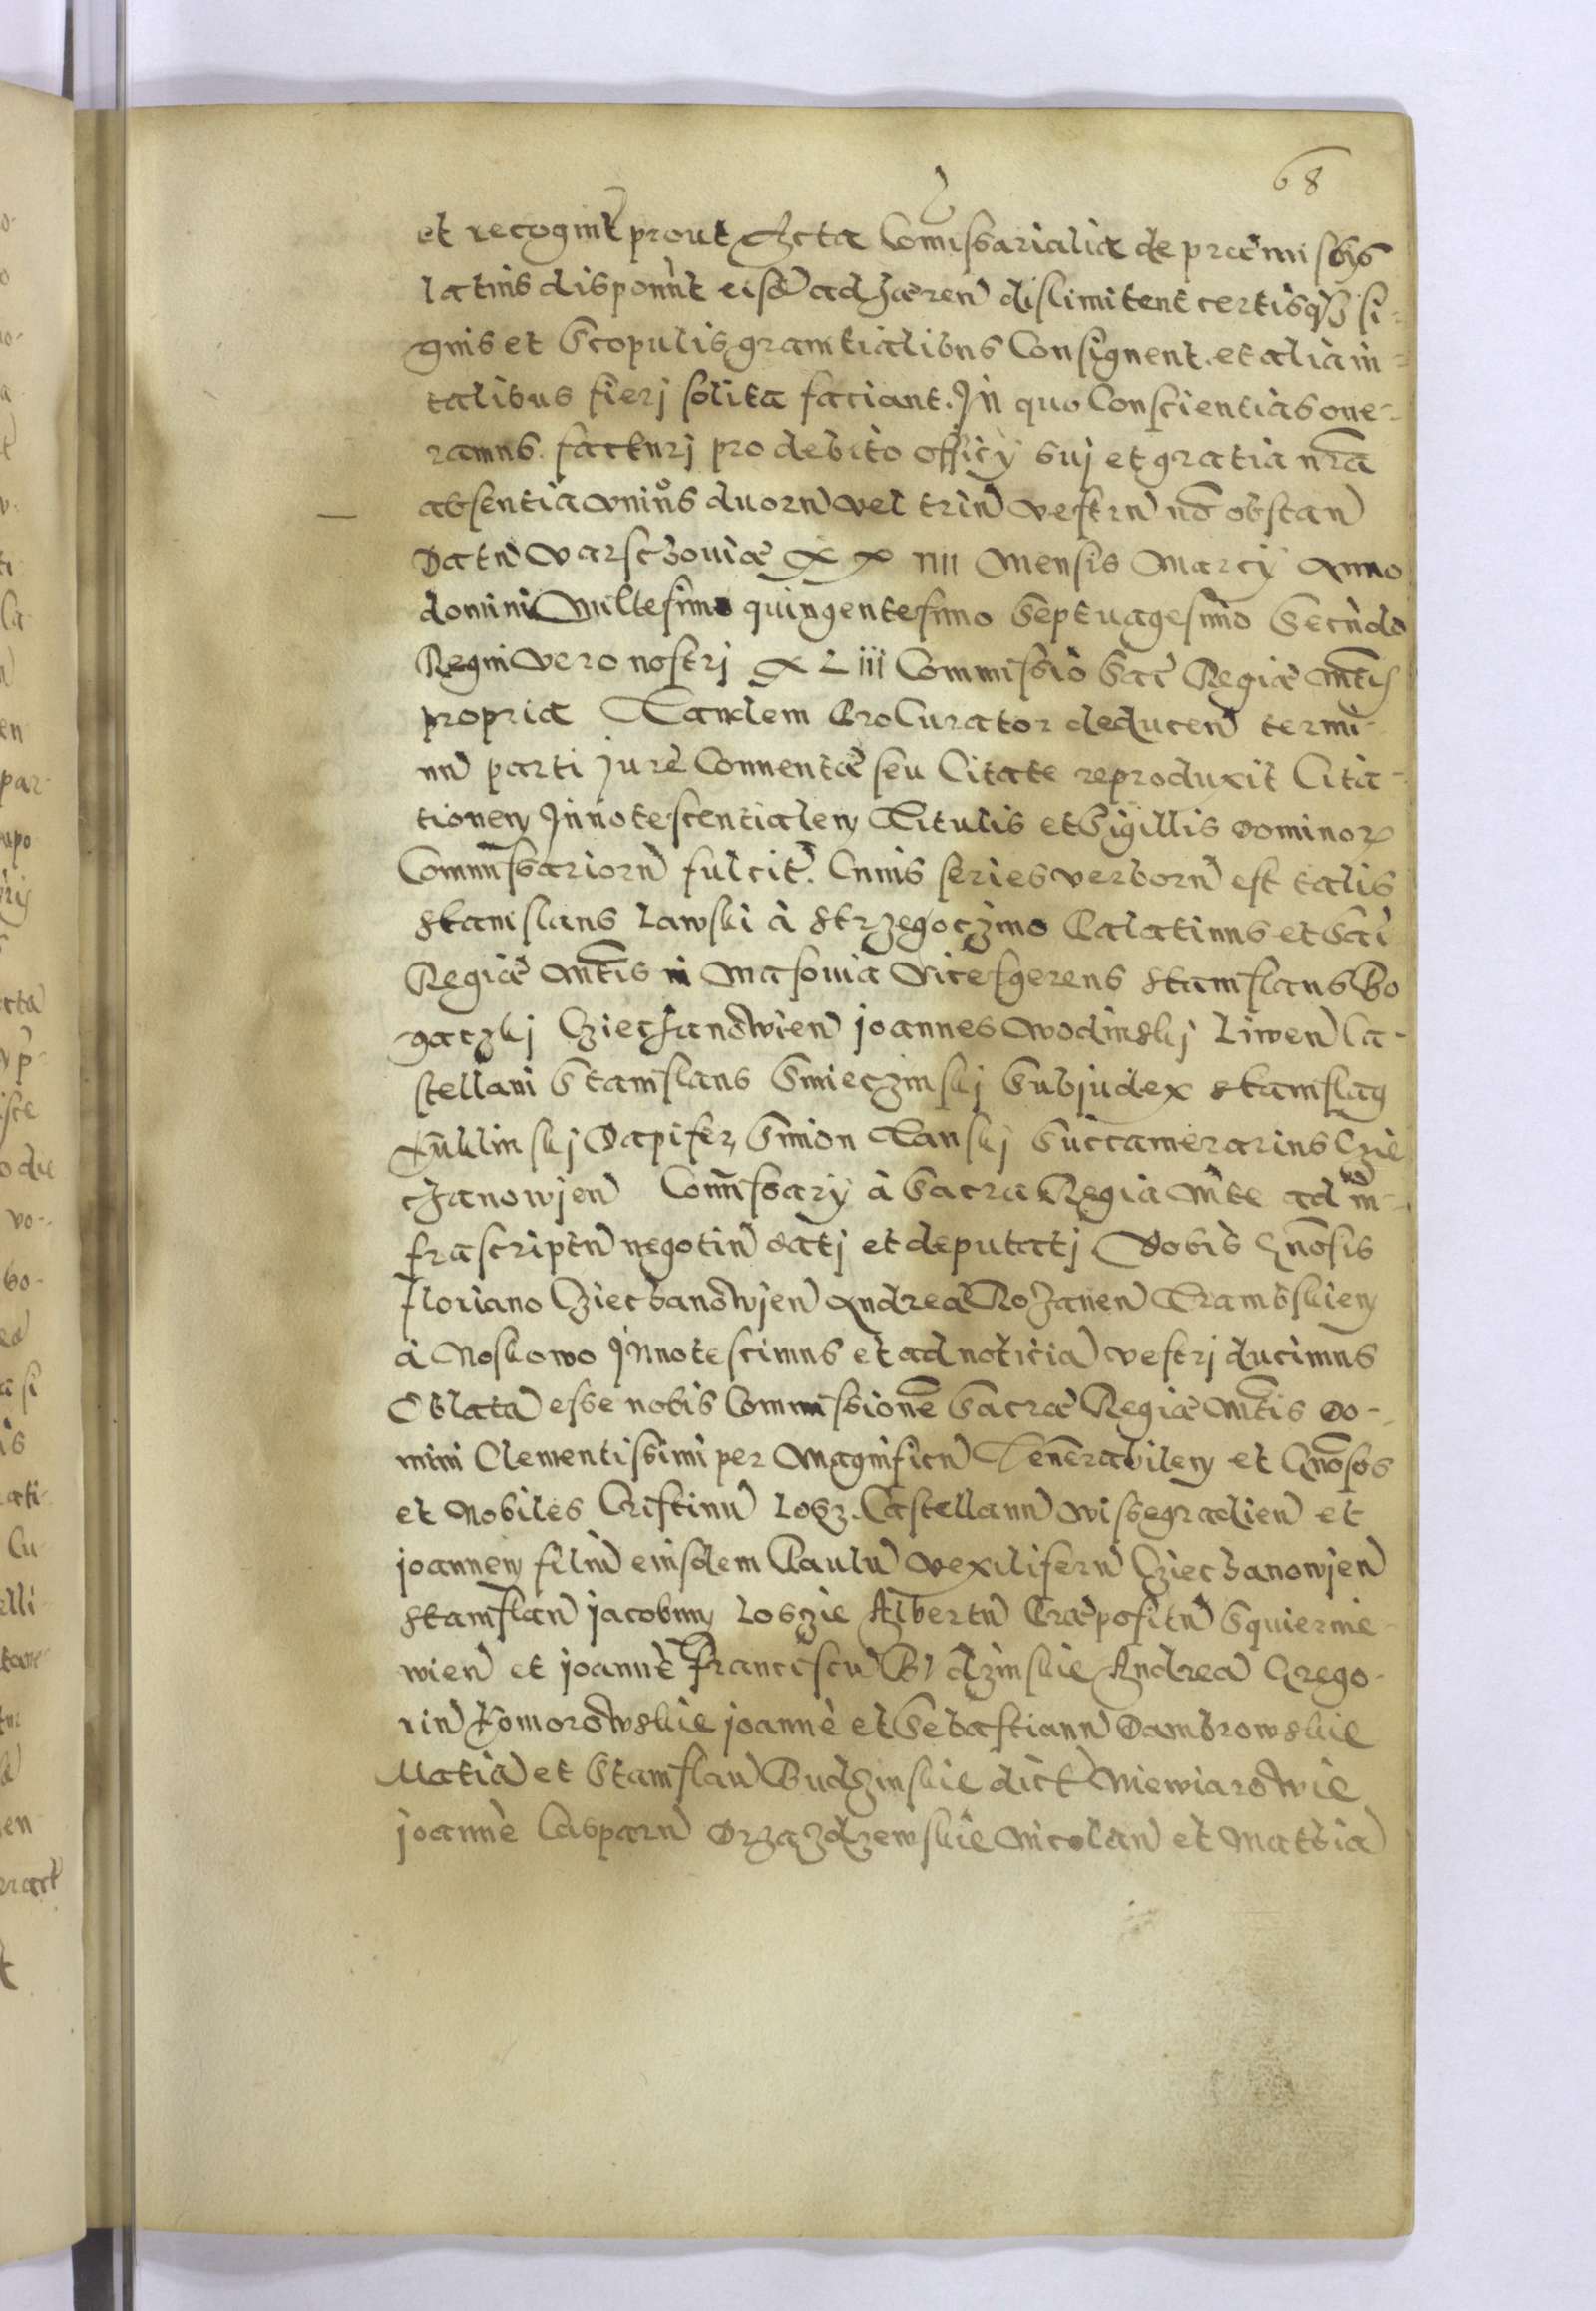 68
et recognit prout Acta Comissarialia de praemissis
latius disponunt eisd adhaeren dislimitent certisq si-
gnis et Scopulis granitialibus Consignent. et alia in
talibus fierj solita faciant. In quo Conscientias one-
ramus. facturj pro debito officÿ suj et gratia nra
absentia unius duoru vel triu vestru no obstan
Datu Varschoviae XX IIII Mensis Marcÿ Anno
domini Millesimo quingentesimo Septuagesimo Secundo
Regni vero nostrj XLiii Commissio Sac Regiae Mtis
propria Tandem Procurator deducen termi-
nu parti jure Conventae seu Citate reproduxit Cita-
tionem Innotescentialem Titulis et Sigillis Dominor
Commissarioru fulcit. Cuius series verboru est talis
Stanislaus Lawski à Strzegoczino Palatinus et Sac
Regiae Mtis in Masovia Vicesgerens Stanislaus Ro
gaczkj Cziechanowien joannes Wodinskj Liwen Ca-
stellani Stanislaus Smieczinskj Subjudex Stanislaus
Kuklinskj Dapifer, Simon Lanskj Succamerarius Czie
chanowjen Comissarÿ à Sacra Regia Mte ad in-
frascriptu negotiu datj et deputatj Vobis Gnosis
Floriano Cziechanowjen Andrea Rozanen Trambskiem
à Noskowo Innotescimus et ad noticia vestrj ducimus
Oblata esse nobis Commissione Sacrae Regiae Mtis Do-
mini Clementissimi per Magnificu Venerabilem et Gnosos
et Nobiles Cristinu Losz. Castellanu Wissegradien et
joannem filiu eiusdem Paulu Vexiliferu Cziechanowjen
Stanislau jacobum Loszie Albertu Praepositu Squiernie-
wien et joanne Franciscu Budzinskie Andrea Grego-
riu Komorowskie joanne et Sebastianu Dambrowskie
Matia et Stanislau Budzinskie dict Niewiarowie
joanne Casparu Drzazdzewskie Nicolau et Mathia